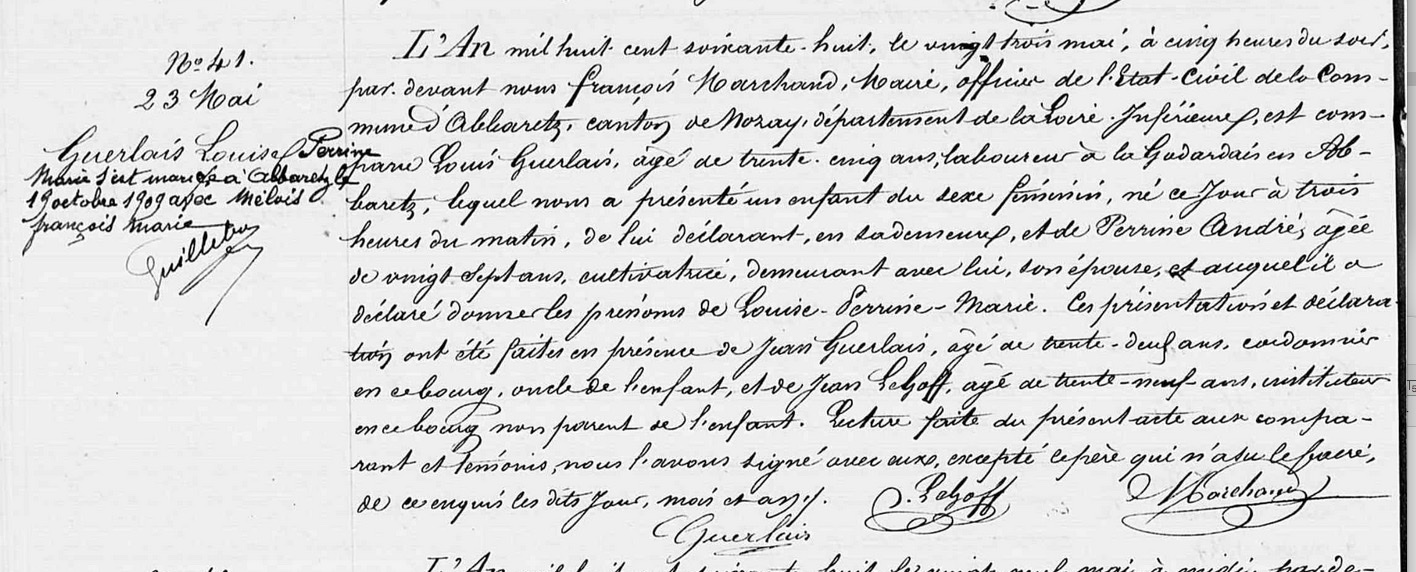 No 41.
23 Mai
Guerlais Louise Perrine
Marie s'est mariée à Abbaretz le
19 octobre 1909 avec Mélois
françois marie
Guilleton
L'An mil huit cent soixante-huit, le vingt trois mai, à cinq heures du soir,
par-devant nous françois Marchand, Maire, officier de l'Etat-Civil de la Com-
mune d'Abbaretz, canton de Nozay, département de la Loire-Inférieure, est com-
paru Louis Guerlais, âgé de trente-cinq ans, laboureur à la Godardais en Ab-
baretz, lequel nous a présenté un enfant du sexe féminin, né ce Jour à trois
heures du matin, de lui déclarant, en sa demeure, et de Perrine André, âgée
de vingt Sept ans, cultivatrice, demeurant avec lui, son épouse, et auquel il a
déclaré donner les prénoms de Louise-Perrine-Marie. Ces présentation et déclara-
tion ont été faites en présence de Jean Guerlais, âgé de trente-deux ans, cordonnier
en ce bourg, oncle de l'enfant, et de Jean LeGoff, âgé de trente-neuf ans, instituteur
en ce bourg non parent de l'enfant. Lecture faite du présent acte aux compa-
rant et témoins, nous l'avons signé avec eux, excepté le père qui n'a su le faire,
de ce enquis les dits Jour, mois et an.
J. LeGoff Marchand
Guerlais
L'An mil huit cent soixante huit le vingt neuf mai à midi par de-